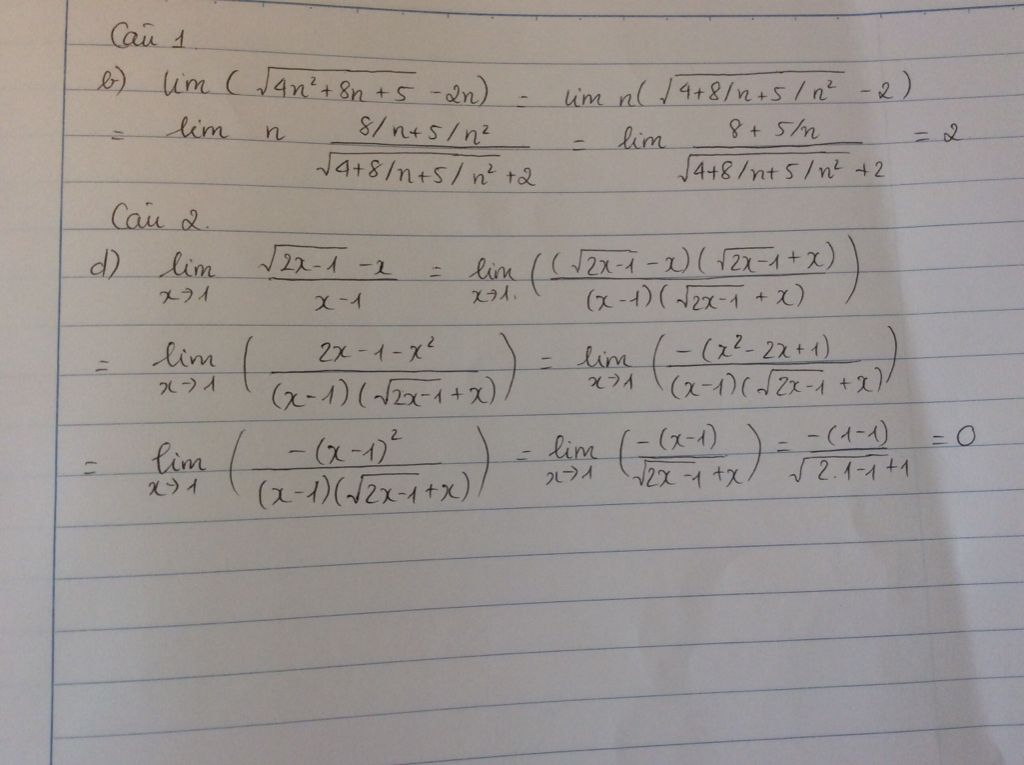 Câu 1.
b) lim ( √(4n² + 8n + 5) - 2n) = lim n( √(4+8/n+5/n²) - 2)
= lim n (8/n+5/n²)/(√(4+8/n+5/n²) +2) = lim (8 + 5/n)/(√(4+8/n+5/n²) +2) = 2
Câu 2.
d) lim x→1 (√(2x-1) - x)/(x-1) = lim x→1. ( ((√(2x-1) - x)(√(2x-1) + x))/((x-1)(√(2x-1) + x)) )
= lim x→1 ( (2x-1-x²)/((x-1)(√(2x-1) + x)) ) = lim x→1 ( (-(x²-2x+1))/((x-1)(√(2x-1) + x)) )
= lim x→1 ( (-(x-1)²)/((x-1)(√(2x-1)+x)) ) = lim x→1 ( (-(x-1))/(√(2x-1) +x) ) = (-(1-1))/(√(2.1-1) +1) = 0